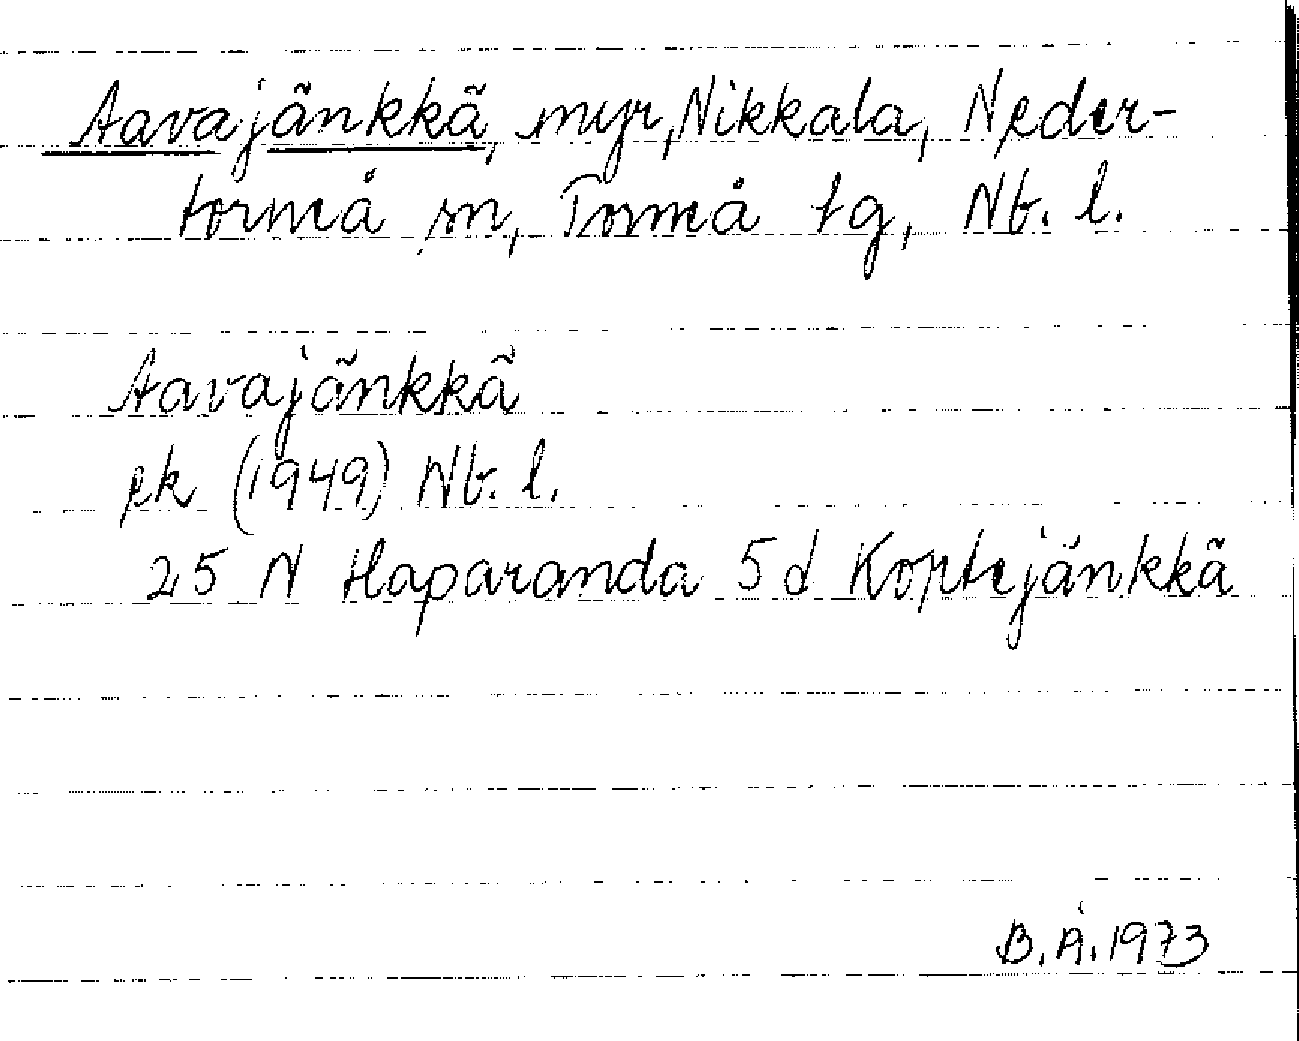 Aavajänkkä, myr, Nikkala, Neder-
torneå sn, Torneå tg, Nb. l.
Aavajänkkä
ek (1949) Nb. l.
25 N Haparanda 5d Koptejänkkä
B.Å. 1973